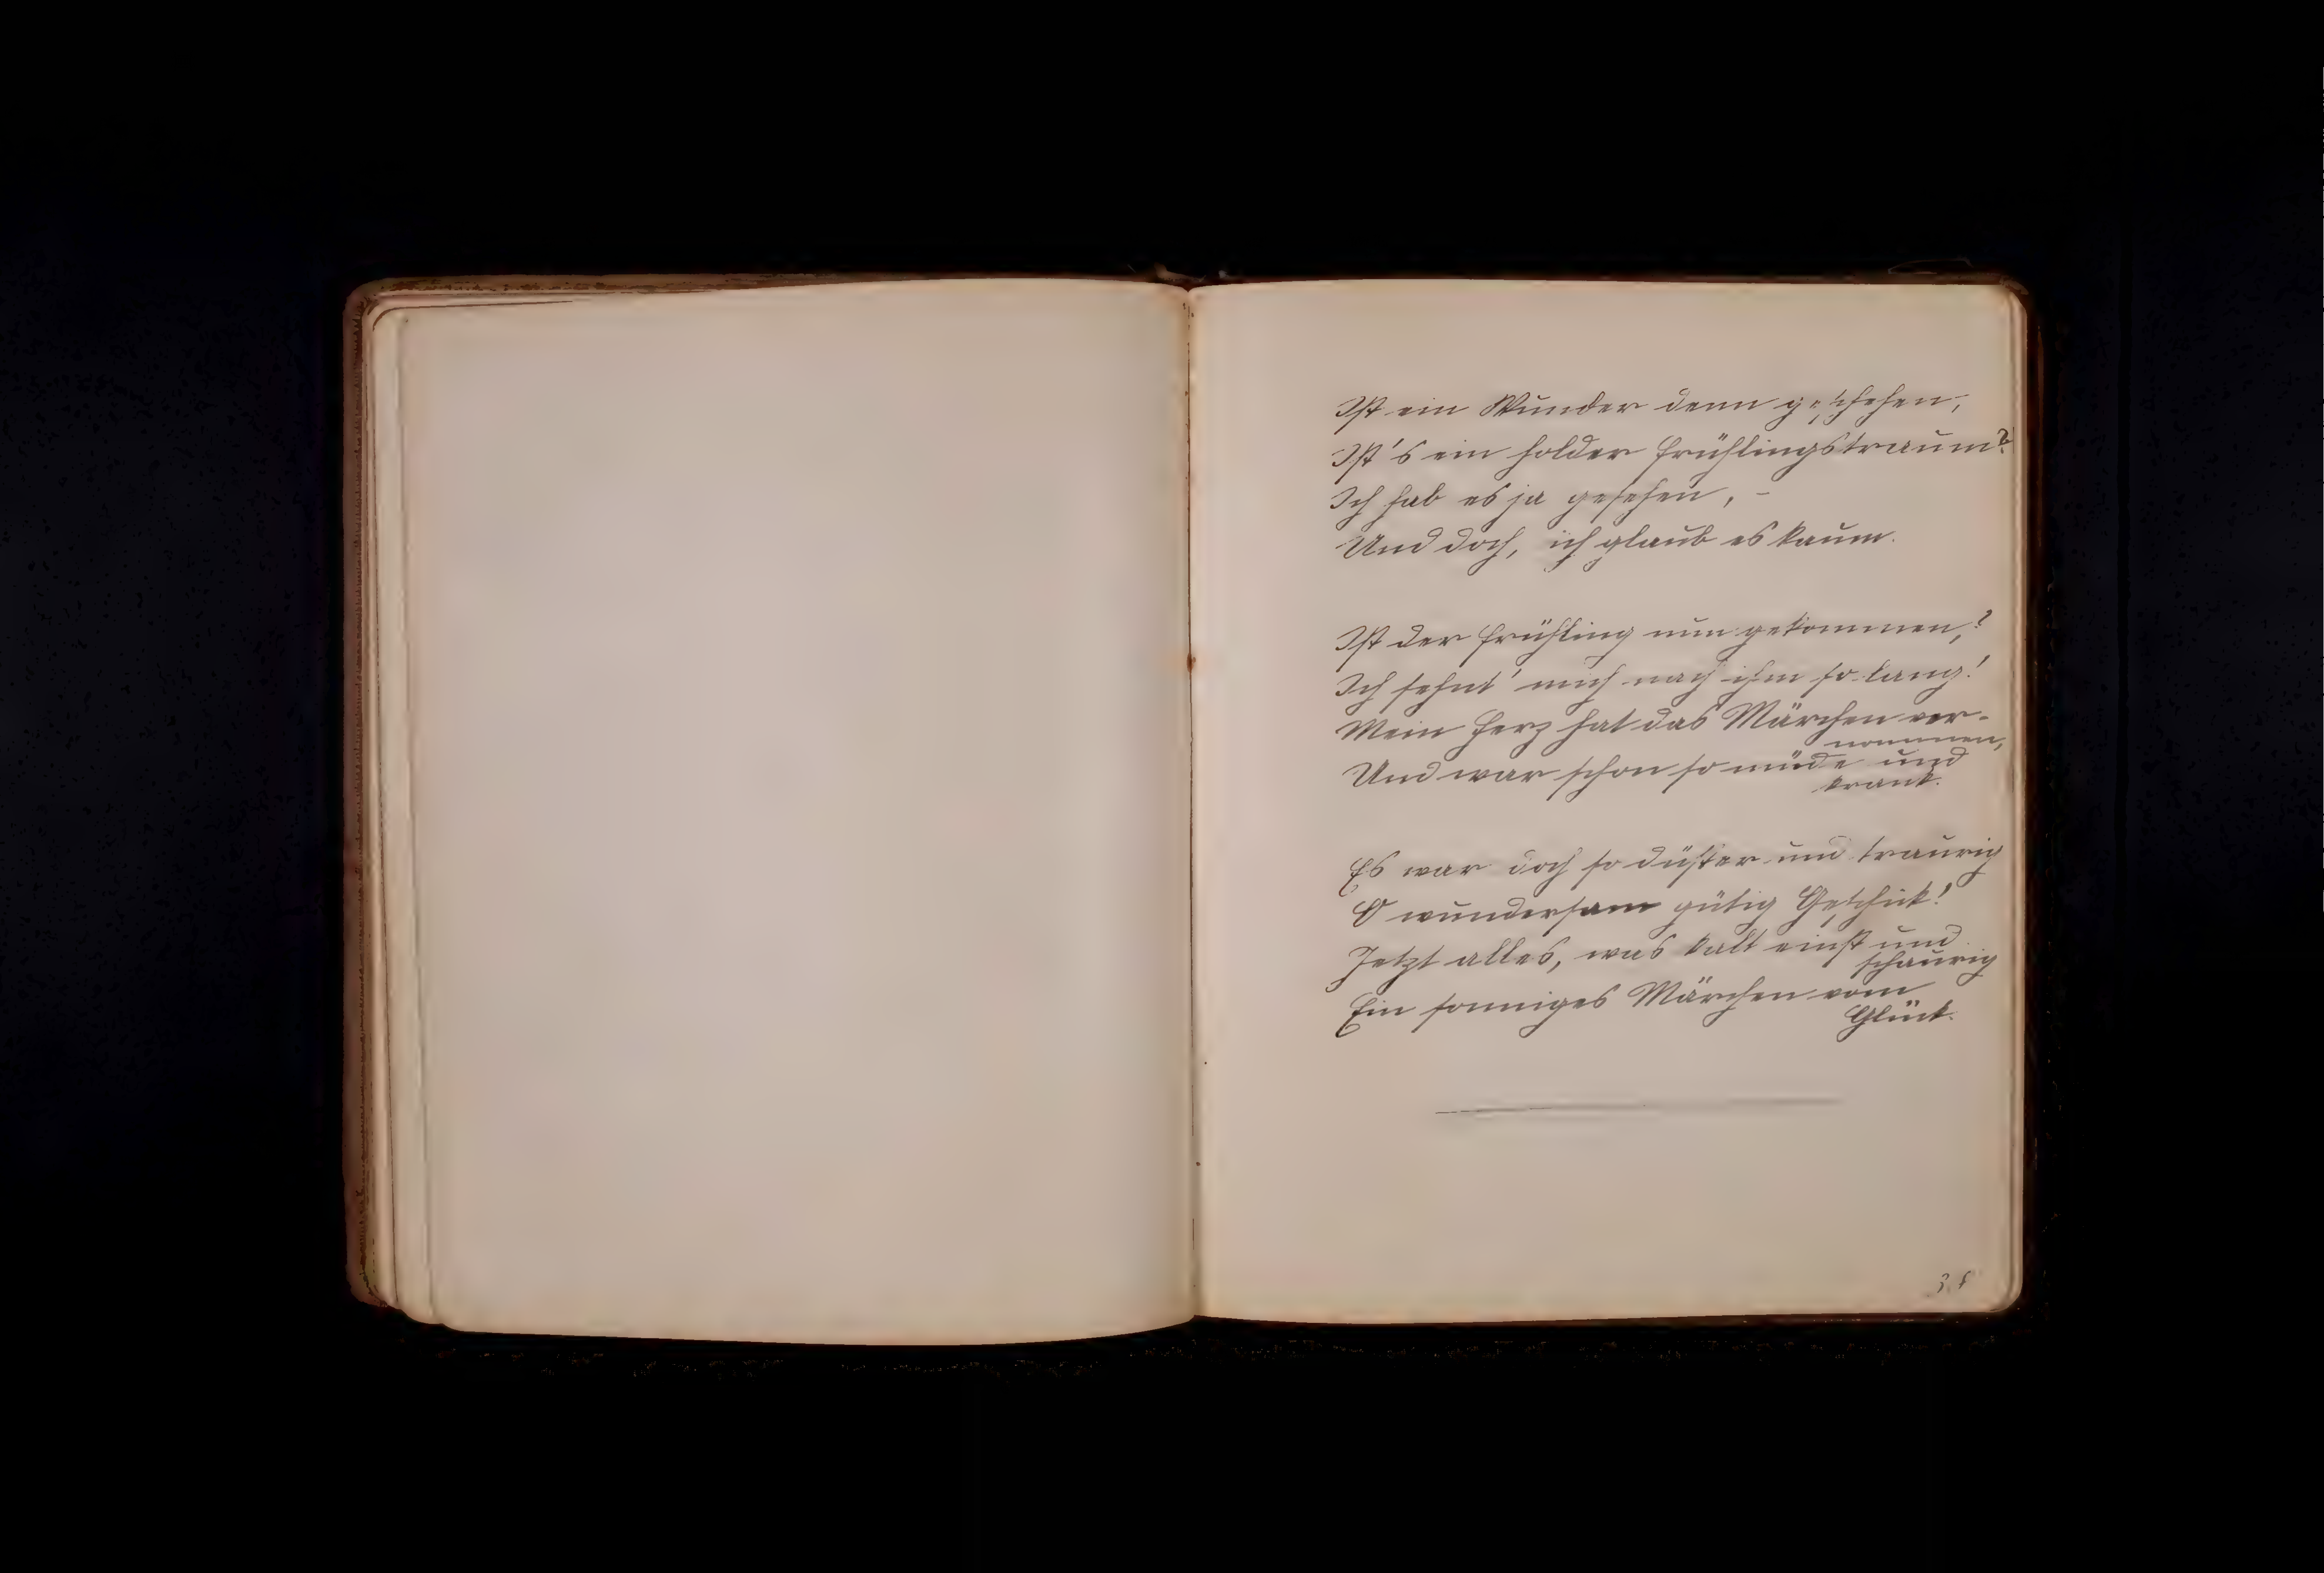 Ist ein Wunder denn geschehen,
Ist's ein holder Frühlingstraum?
Ich hab es ja gesehen, –
Und doch, ich glaub es kaum.
Ist der Frühling nun gekommen,?
Ich sehnt' mich nach ihm so lang!
Mein Herz hat das Märchen ver-
nommen,
Und war schon so müde und
krank.
Es war doch so düster und traurig
O wundersam gütig Geschick!
Jetzt alles, was kalt einst und
schaurig
Ein sonniges Märchen vom
Glück.